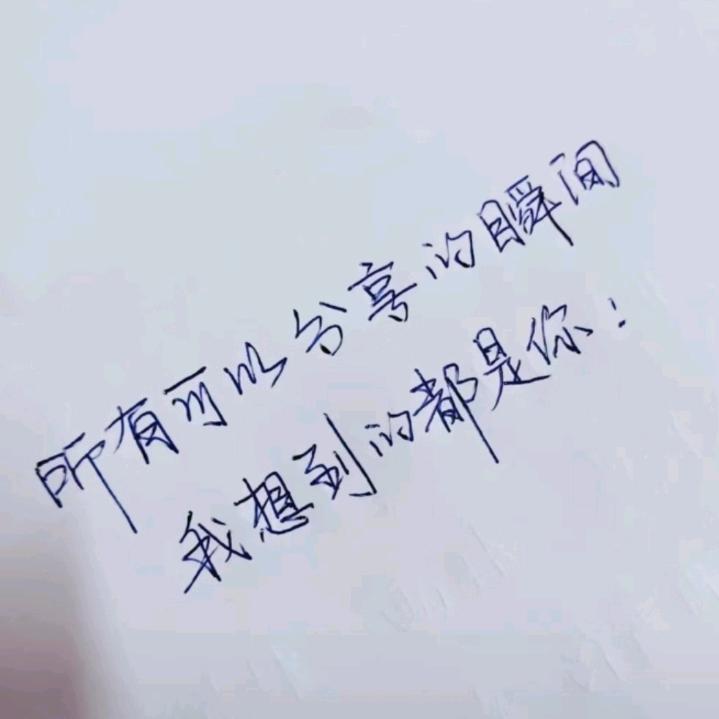 所有可以分享的瞬间
我想到的都是你!